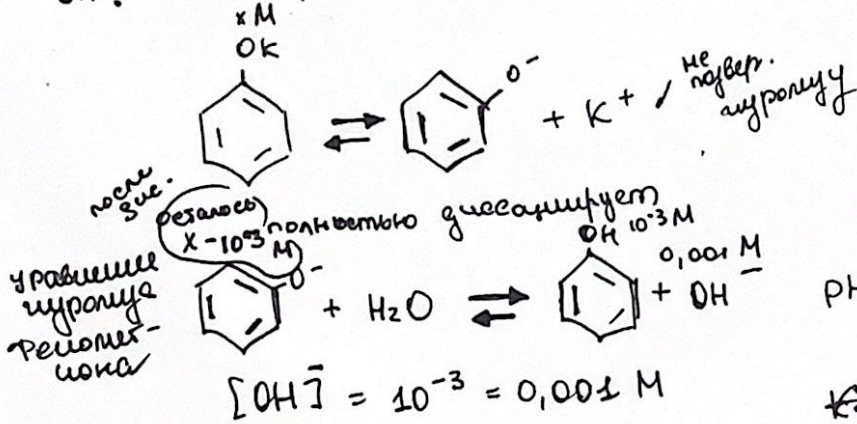 x М
ОК
O⁻ + K⁺ / не подвер. гидролизу
после дис. осталось x - 10⁻³ М полностью диссоциирует
OH 10⁻³ М
уравнение гидролиза фенолят-иона
O⁻ + H₂O ⇌ + OH⁻ 0,001 М
PH
[OH]⁻ = 10⁻³ = 0,001 М